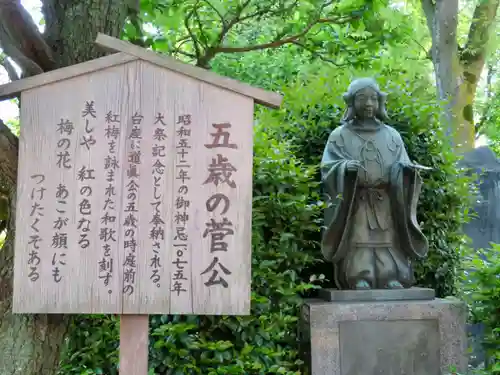 五歳の菅公
昭和五十二年の御神忌一〇七五年
大祭記念として奉納される。
台座に道眞公の五歳の時庭前の
紅梅を詠まれた和歌を刻す。
美しや 紅の色なる
梅の花 あこが顔にも
つけたくぞある